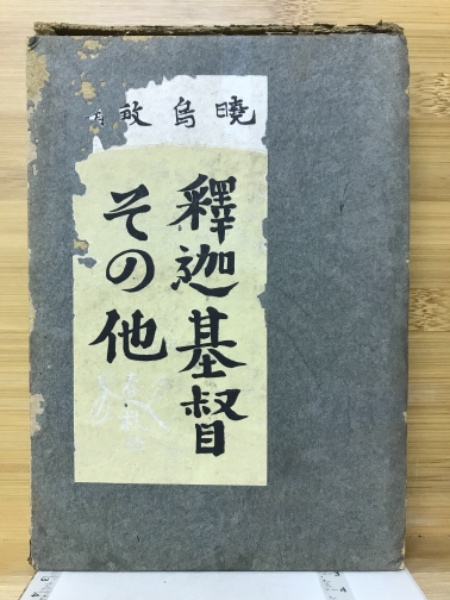 曉烏敏
釋迦基督
その他